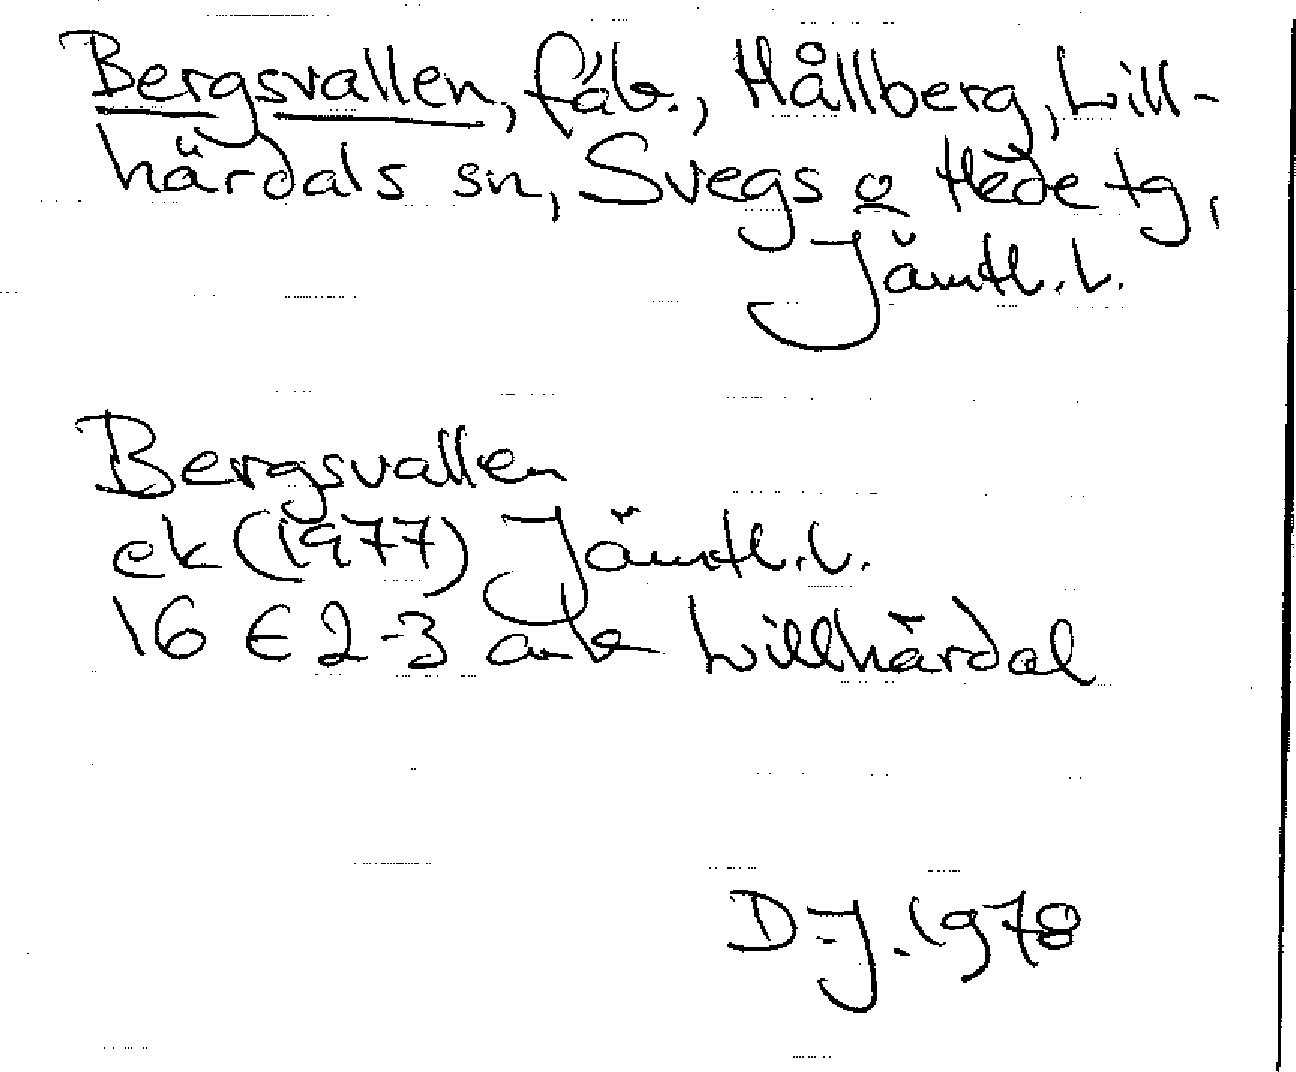 Bergsvallen, fäb., Hållberg, Lill-
härdals sn, Svegs o Hede tg,
Jämtl. l.
Bergsvallen
ek (1977) Jämtl. l.
16 E 2-3 a-b Lillhärdal
D.J. 1978